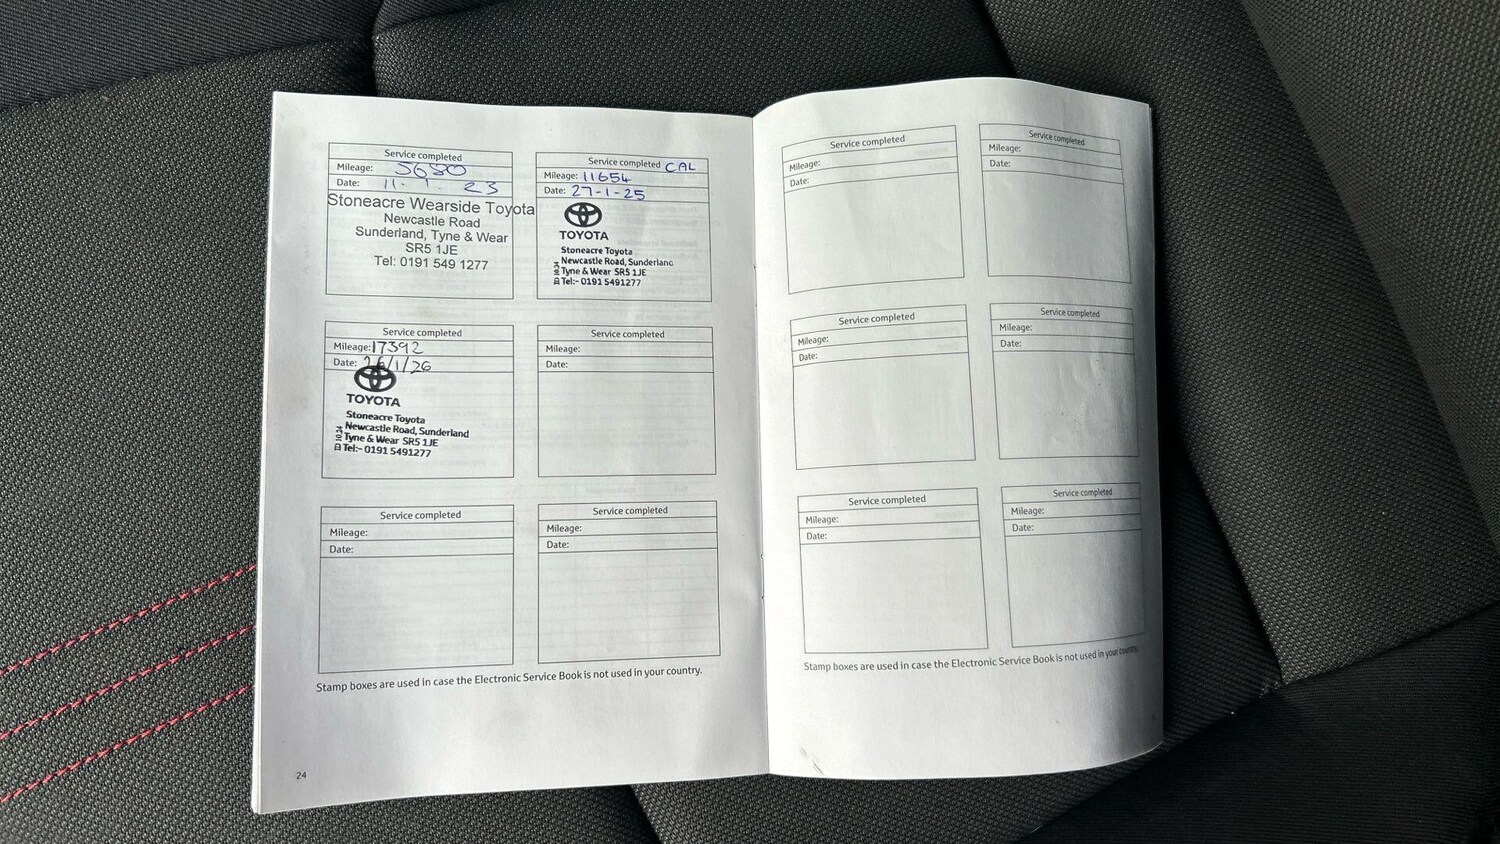 Service completed
Mileage: 5680
Date: 11. 1. 23
Stoneacre Wearside Toyota
Newcastle Road
Sunderland, Tyne & Wear
SR5 1JE
Tel: 0191 549 1277
Service completed CAL
Mileage: 11654
Date: 27-1-25
TOYOTA
Stoneacre Toyota
Newcastle Road, Sunderland
Tyne & Wear SR5 1JE
Tel:- 0191 5491277
Service completed
Mileage: 17392
Date: 26/1/26
TOYOTA
Stoneacre Toyota
Newcastle Road, Sunderland
Tyne & Wear SR5 1JE
Tel:- 0191 5491277
Service completed
Mileage:
Date:
Service completed
Mileage:
Date:
Service completed
Mileage:
Date:
Stamp boxes are used in case the Electronic Service Book is not used in your country.
24
Service completed
Mileage:
Date:
Service completed
Mileage:
Date:
Service completed
Mileage:
Date:
Service completed
Mileage:
Date:
Service completed
Mileage:
Date:
Service completed
Mileage:
Date:
Stamp boxes are used in case the Electronic Service Book is not used in your country.